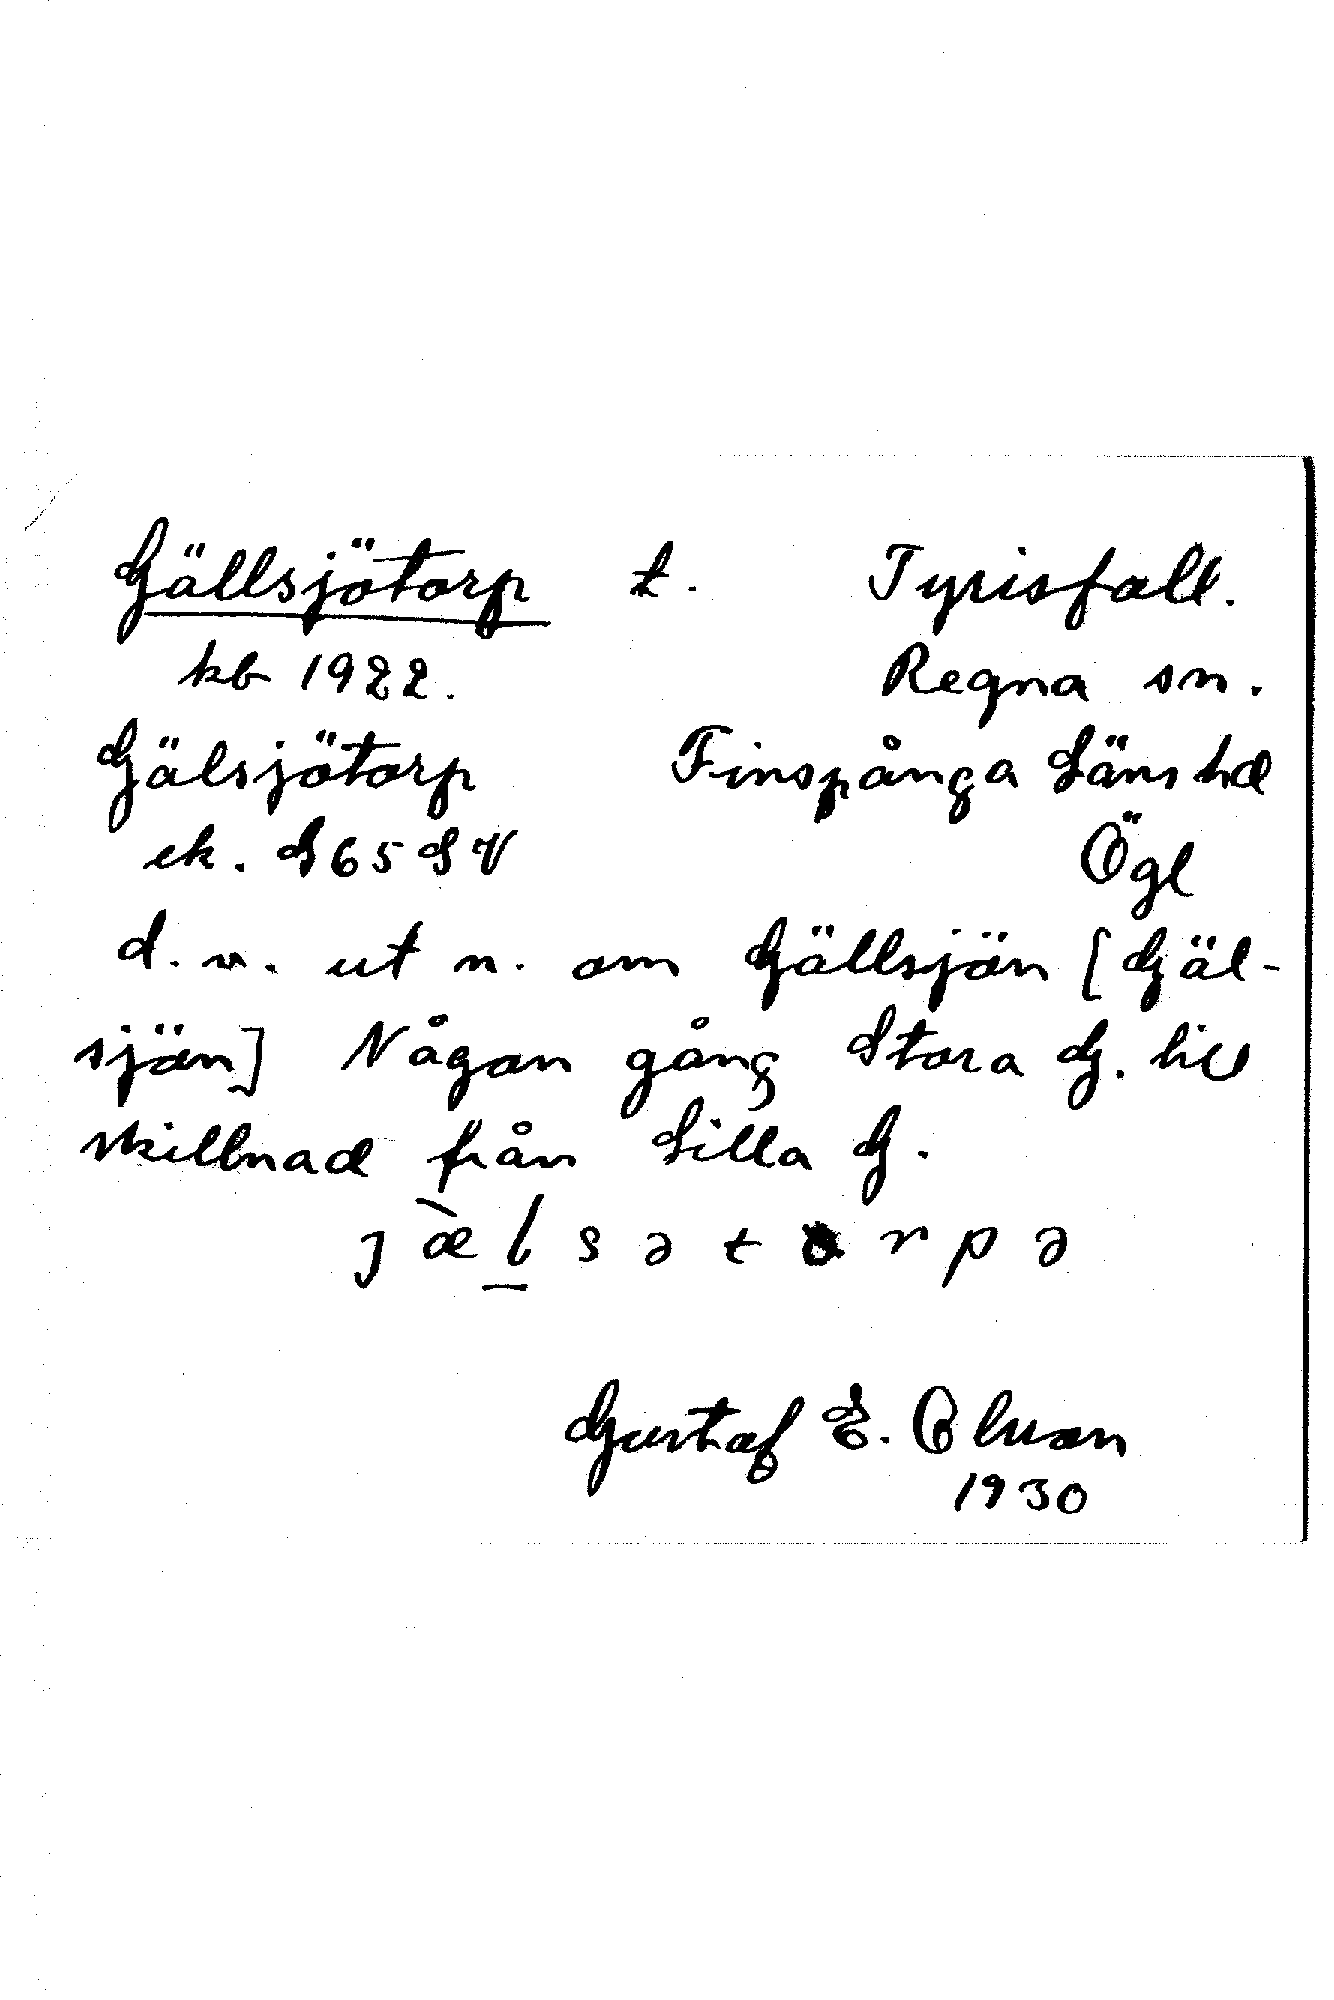 Gällsjötorp t. Tyrisfall.
kb 1922. Regna sn.
Gälsjötorp Finspånga Läns hd
ek. S65SV Ögl
d. v. ut n. om Gällsjön [Gäl-
sjön] Någon gång Stora G. till
skillnad från Lilla G.
ȷæ̀l̲sətorpə
Gustaf E.
1930